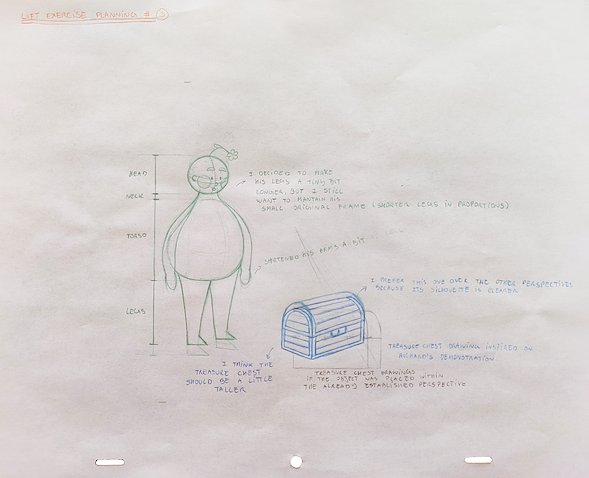 LIFT EXERCISE PLANNING #
HEAD
NECK
TORSO
LEGS
I DECIDED TO MAKE
HIS LEGS A TINY BIT
LONGER, BUT I STILL
WANT TO MANTAIN HIS
SMALL ORIGINAL FRAME (SHORTER LEGS IN PROPORTIONS)
SHORTENED HIS ARMS A BIT
I PREFER THIS ONE OVER THE OTHER PERSPECTIVES
BECAUSE ITS SILHOUETTE IS CLEARER
TREASURE CHEST DRAWING INSPIRED ON
DEMONSTRATION.
I THINK THE
TREASURE CHEST
SHOULD BE A LITTLE
TALLER
TREASURE CHEST DRAWINGS
IF THE OBJECT WAS PLACED WITHIN
THE ALREADY ESTABLISHED PERSPECTIVE